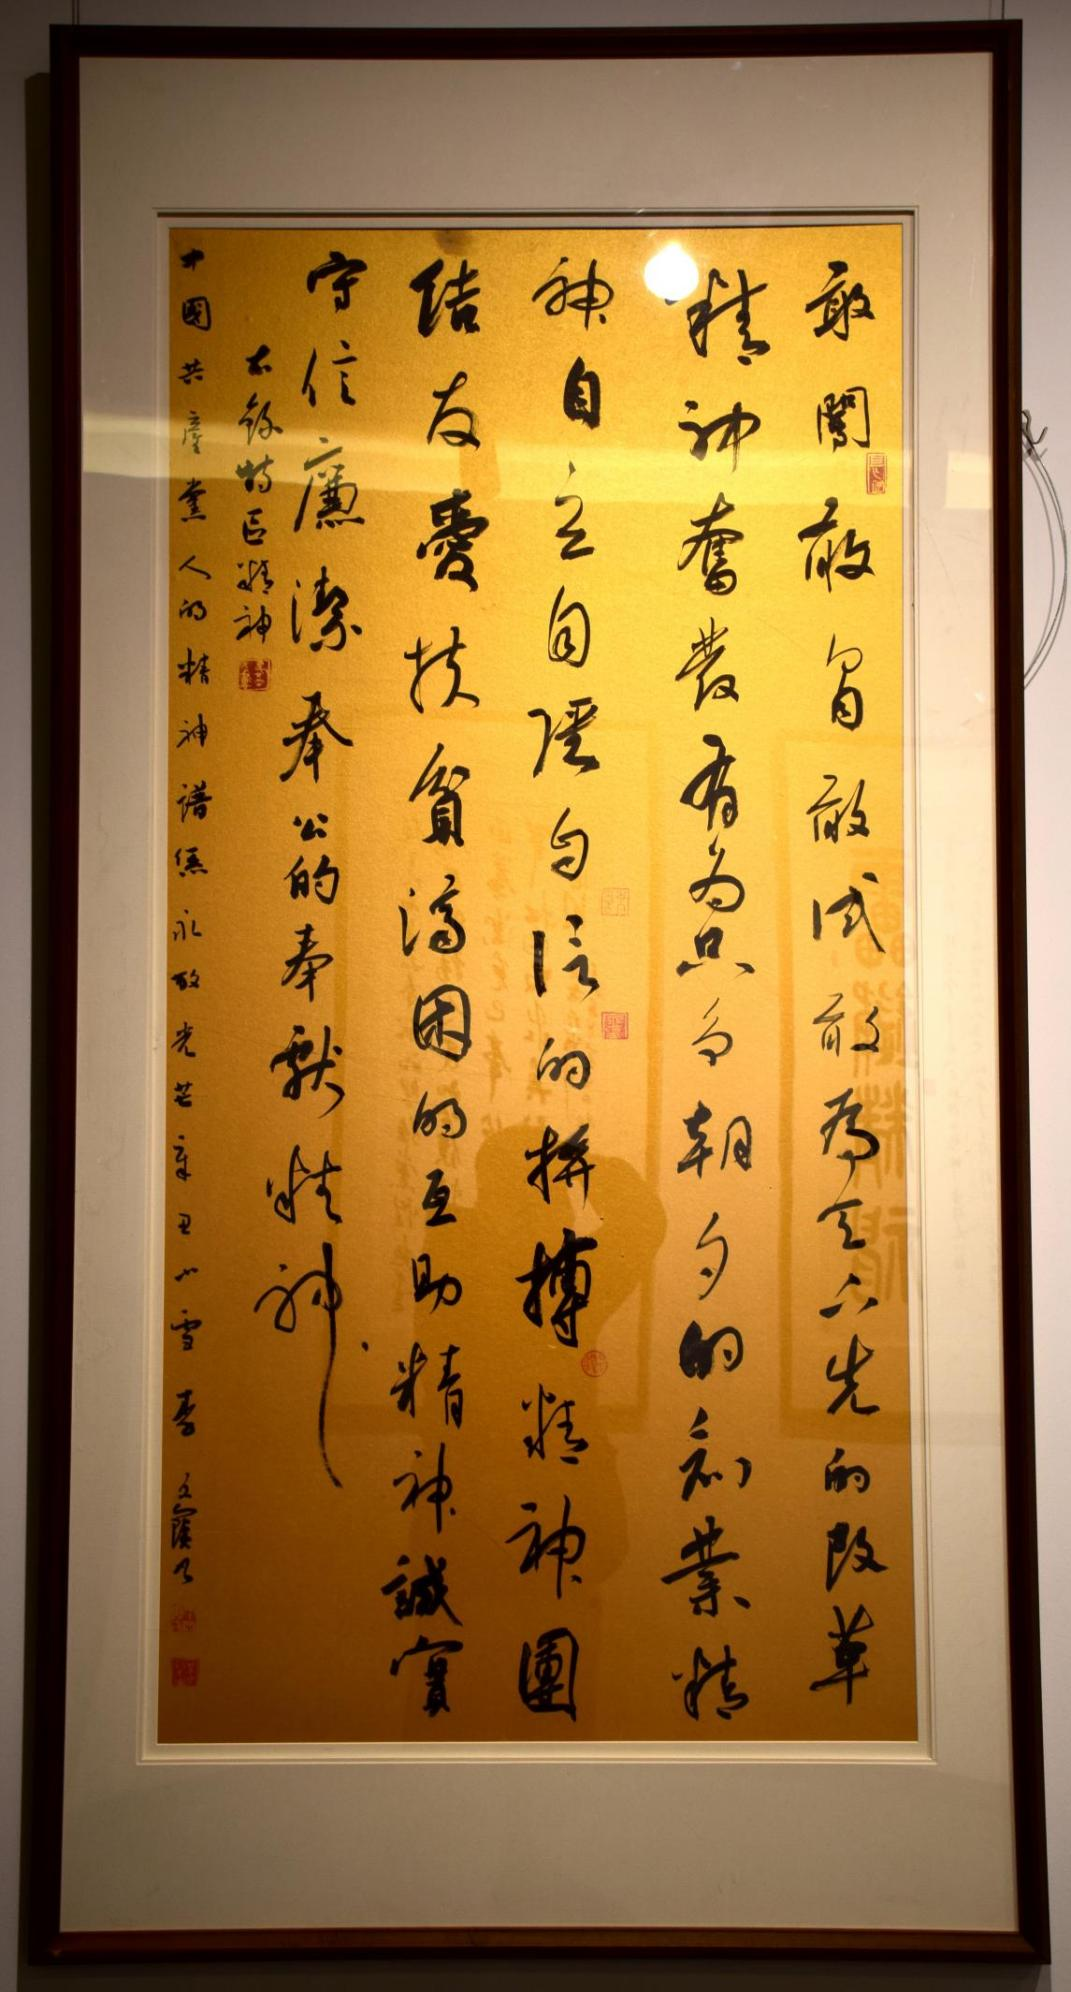 敢闖敢冒敢試敢為天下先的改革
精神奮發有为只争朝夕的創業精
神自立自强自信的拼搏精神團
結友愛扶貧濟困的互助精神誠實
守信廉潔奉公的奉獻精神
右錄特区精神
中國共産党人的精神譜係永放光芒辛丑小雪李文寶書